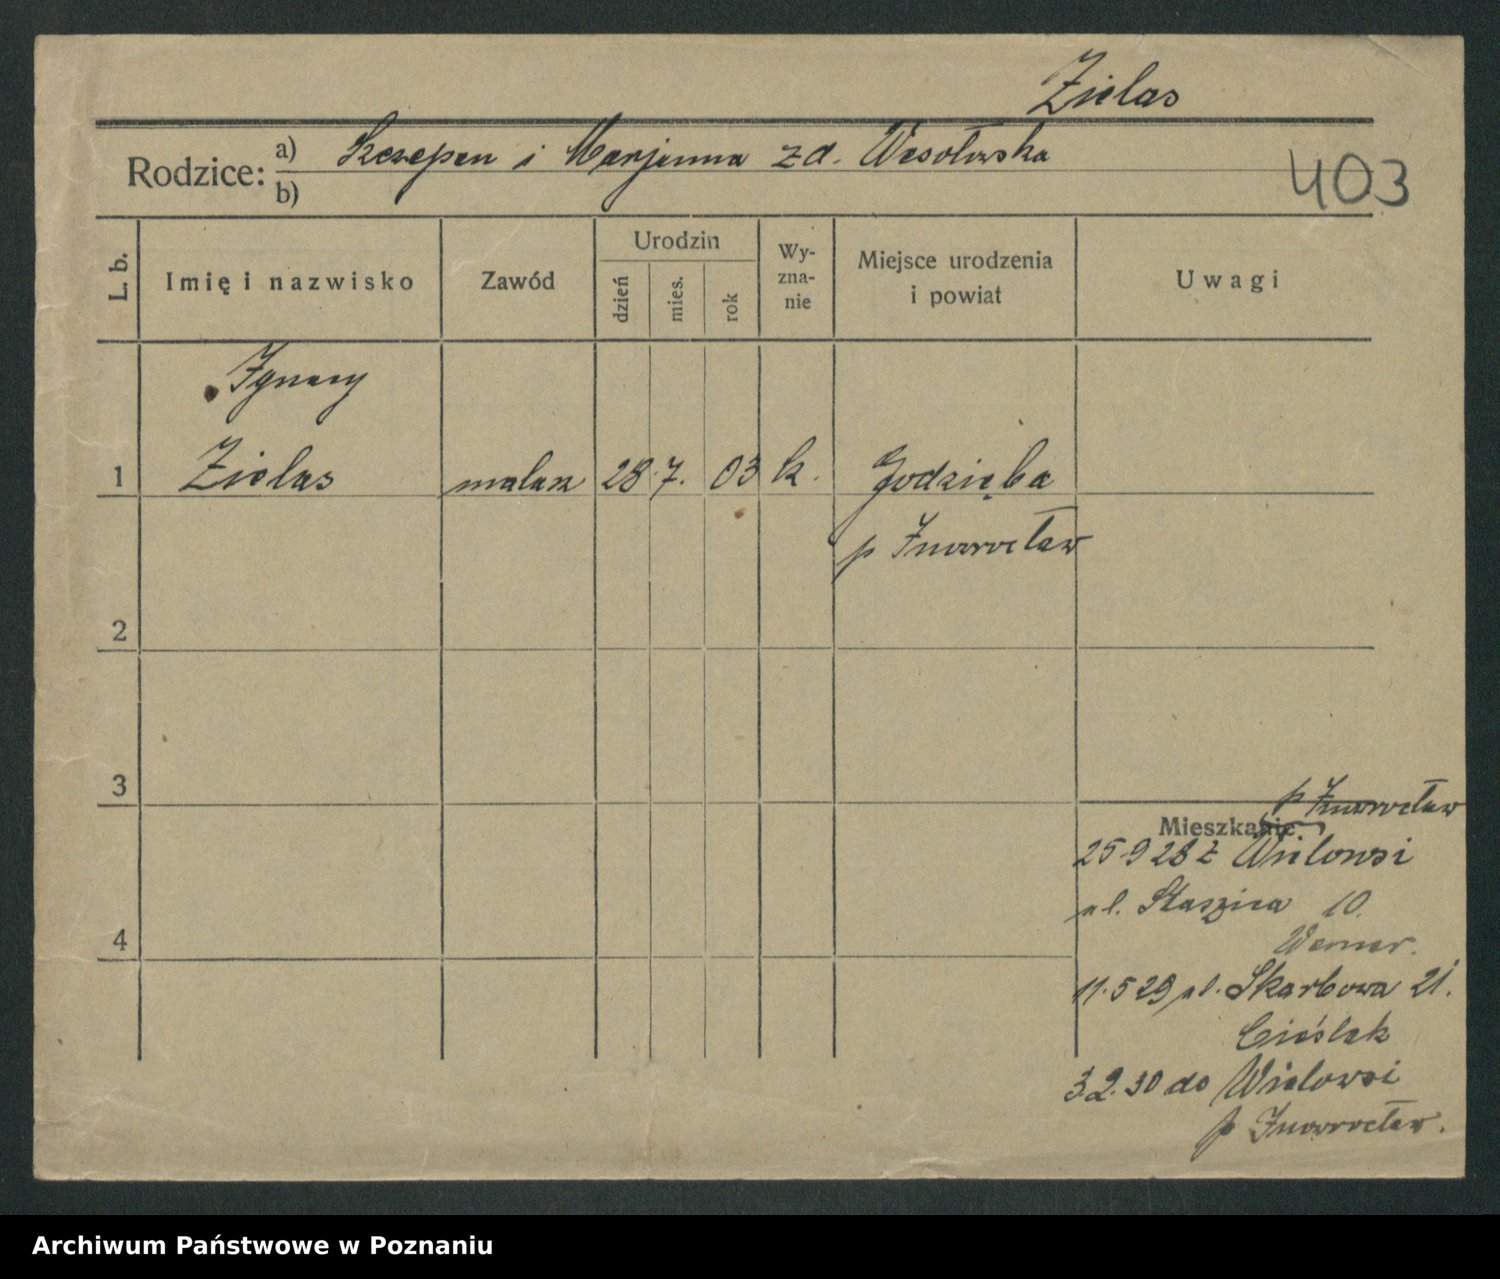 Zielas
Rodzice: a) Szczepan i Marjanna zd. Wesołowska
b)
403
L. b.
Imię i nazwisko
Zawód
Urodzin
dzień
mies.
rok
Wy-
zna-
nie
Miejsce urodzenia
i powiat
Uwagi
Ignacy
1 Zielas malarz 28 7. 03 k. Godzięba
p Inowrocław
2
3
p Inowrocław
Mieszkanie
25 9 28 z Wielowsi
ul. Staszica 10.
4
Werner.
11.5 29 ul. Skarbowa 21.
Cieślak
3.2.30 do Wielowsi
p Inowrocław.
Archiwum Państwowe w Poznaniu